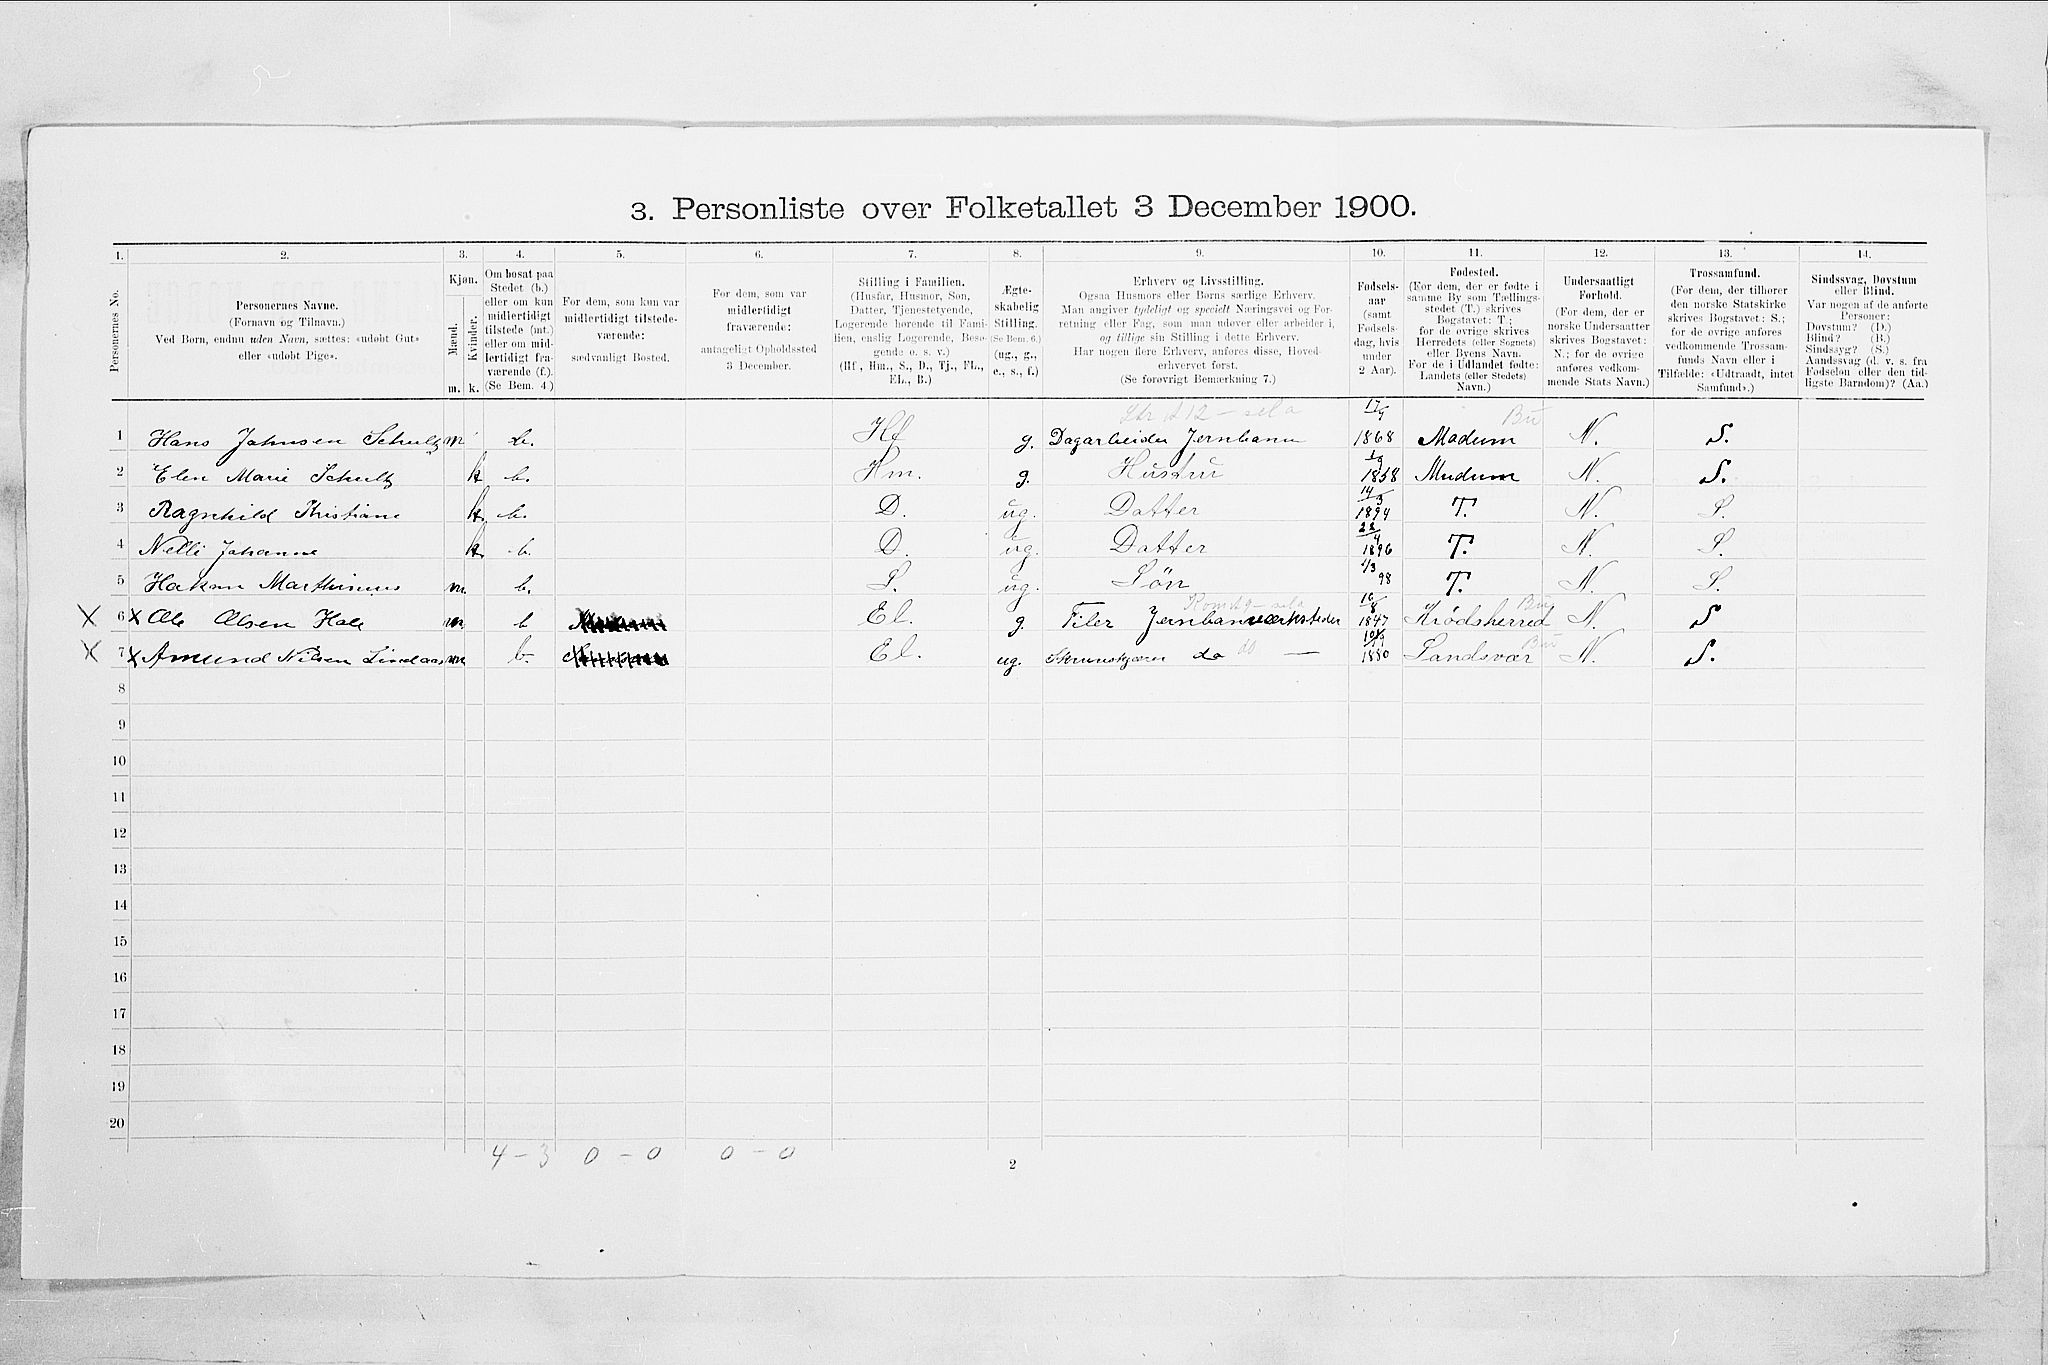 3. Personliste over Folketallet 3 December 1900.
1. 2. 3. 4. 5. 6. 7. 8. 9. 10. 11. 12. 13. 14.
Personernes No.
Personernes Navne.
(Fornavn og Tilnavn.)
Ved Børn, endnu uden Navn, sættes: «udøbt Gut»
eller «udøbt Pige».
Kjøn.
Mænd.
Kvinder.
m. k.
Om bosat paa
Stedet (b.)
eller om kun
midlertidigt
tilstede (mt.)
eller om mid-
lertidigt fra-
værende (f.).
(Se Bem. 4.)
For dem, som kun var
midlertidigt tilstede-
værende:
sædvanligt Bosted.
For dem, som var
midlertidigt
fraværende:
antageligt Opholdssted
3 December.
Stilling i Familien.
(Husfar, Husmor, Søn,
Datter, Tjenestetyende,
Logerende hørende til Fami-
lien, enslig Logerende, Besø-
gende o. s. v.)
(Hf., Hm., S., D., Tj., FL.,
EL., B.)
Ægte-
skabelig
Stilling.
(Se Bem. 6.)
(ug., g.,
e., s., f.)
Erhverv og Livsstilling.
Ogsaa Husmors eller Børns særlige Erhverv.
Man angiver tydeligt og specielt Næringsvei og For-
retning eller Fag, som man udøver eller arbeider i,
og tillige sin Stilling i dette Erhverv.
Har nogen flere Erhverv, anføres disse, Hoved-
erhvervet først.
(Se forøvrigt Bemærkning 7.)
Fødsels-
aar
(samt
Fødsels-
dag, hvis
under
2 Aar).
Fødested.
(For dem, der er fødte i
samme By som Tællings-
stedet (T.) skrives
Bogstavet: T;
for de øvrige skrives
Herredets (eller Sognets)
eller Byens Navn.
For de i Udlandet fødte:
Landets (eller Stedets)
Navn.)
Undersaatligt
Forhold.
(For dem, der er
norske Undersaatter
skrives Bogstavet:
N.; for de øvrige
anføres vedkom-
mende Stats Navn.)
Trossamfund.
(For dem, der tilhører
den norske Statskirke
skrives Bogstavet: S.;
for de øvrige anføres
vedkommende Trossam-
funds Navn eller i
Tilfælde: «Udtraadt, intet
Samfund».)
Sindssvag, Døvstum
eller Blind.
Var nogen af de anførte
Personer:
Døvstum? (D.)
Blind? (B.)
Sindssyg? (S.)
Aandssvag (d. v. s. fra
Fødselen eller den tid-
ligste Barndom)? (Aa.)
1 Hans Johnsen Schultz m b. Hf g. Dagarbeider Jernbanen 17/9 1868 Modum Bu N. S.
2 Elen Marie Schultz k b. Hm. g. Hustru 1858 Modum N. S.
3 Ragnhild Kristiane k. b. D. ug. Datter 14/3 1894 T. N. S.
4 Nelli Johanne k. b. D. ug. Datter 22/4 1896 T. N. S.
5 Hakon Marthinius m. b. S. ug. Søn 1/3 98 T. N. S.
X 6 X Ole Olsen Hole m. b El. g. Filer Jernbaneværksteder 10/8 1847 Krødsherred Bu N. S
X 7 X Amund Nilsen Lindaas m b. El. ug. do do — 1880 Sandsvær Bu N. S.
8
9
10
11
12
13
14
15
16
17
18
19
20
4 - 3 0 - 0 0 - 0
2